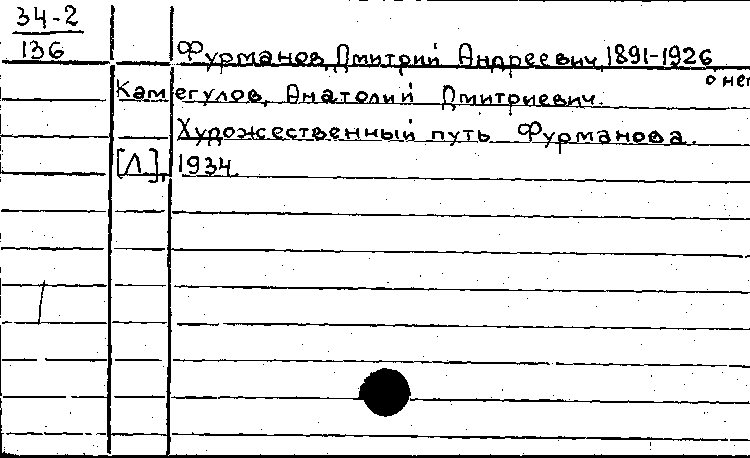 34-2
136
Фурманов, Дмитрий Андреевич, 1891-1926
о нем
Камегулов, Анатолий Дмитриевич.
Художественный путь Фурманова.
[Л.], 1934.